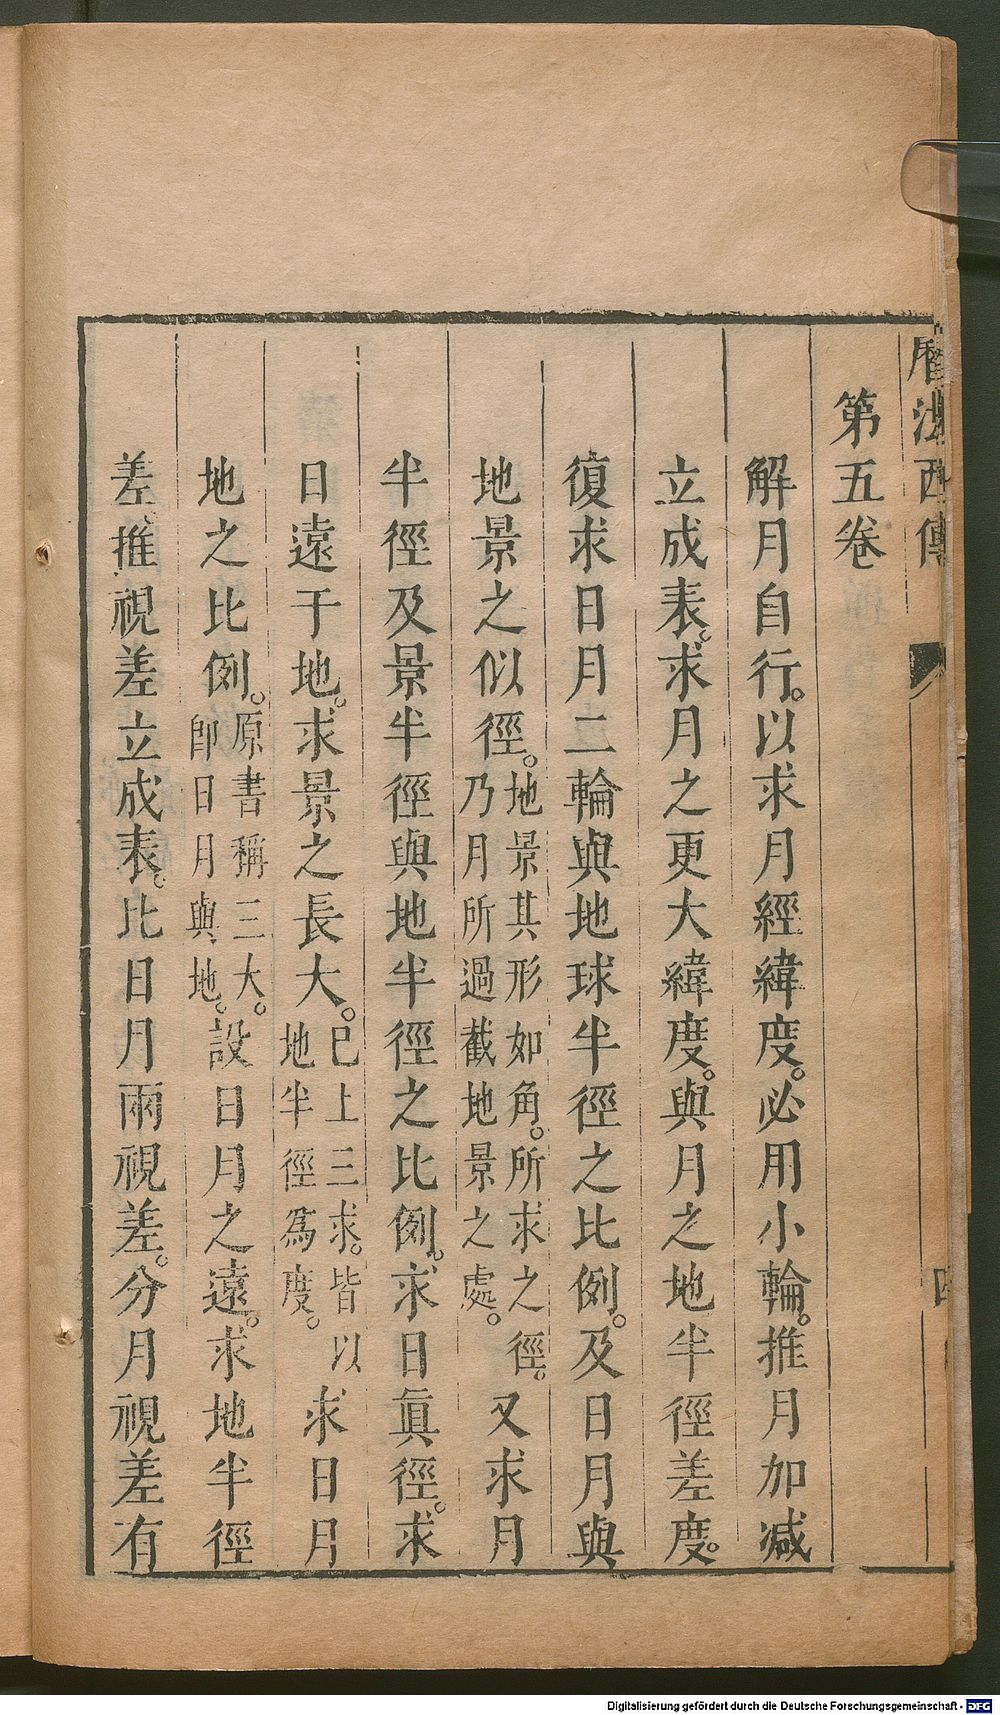 曆法西傳
四
第五卷
解月自行。以求月經緯度。必用小輪。推月加減
立成表。求月之更大緯度。與月之地半徑差度。
復求日月二輪與地球半徑之比例。及日月與
地景之似徑。地景其形如角。所求之徑。乃月所過截地景之處。又求月
半徑及景半徑與地半徑之比例。求日眞徑。求
日遠于地。求景之長大。已上三求。皆以地半徑爲度。求日月
地之比例。原書稱三大。卽日月與地。設日月之遠。求地半徑
差。推視差立成表。比日月兩視差。分月視差有
Digitalisierung gefördert durch die Deutsche Forschungsgemeinschaft - DFG